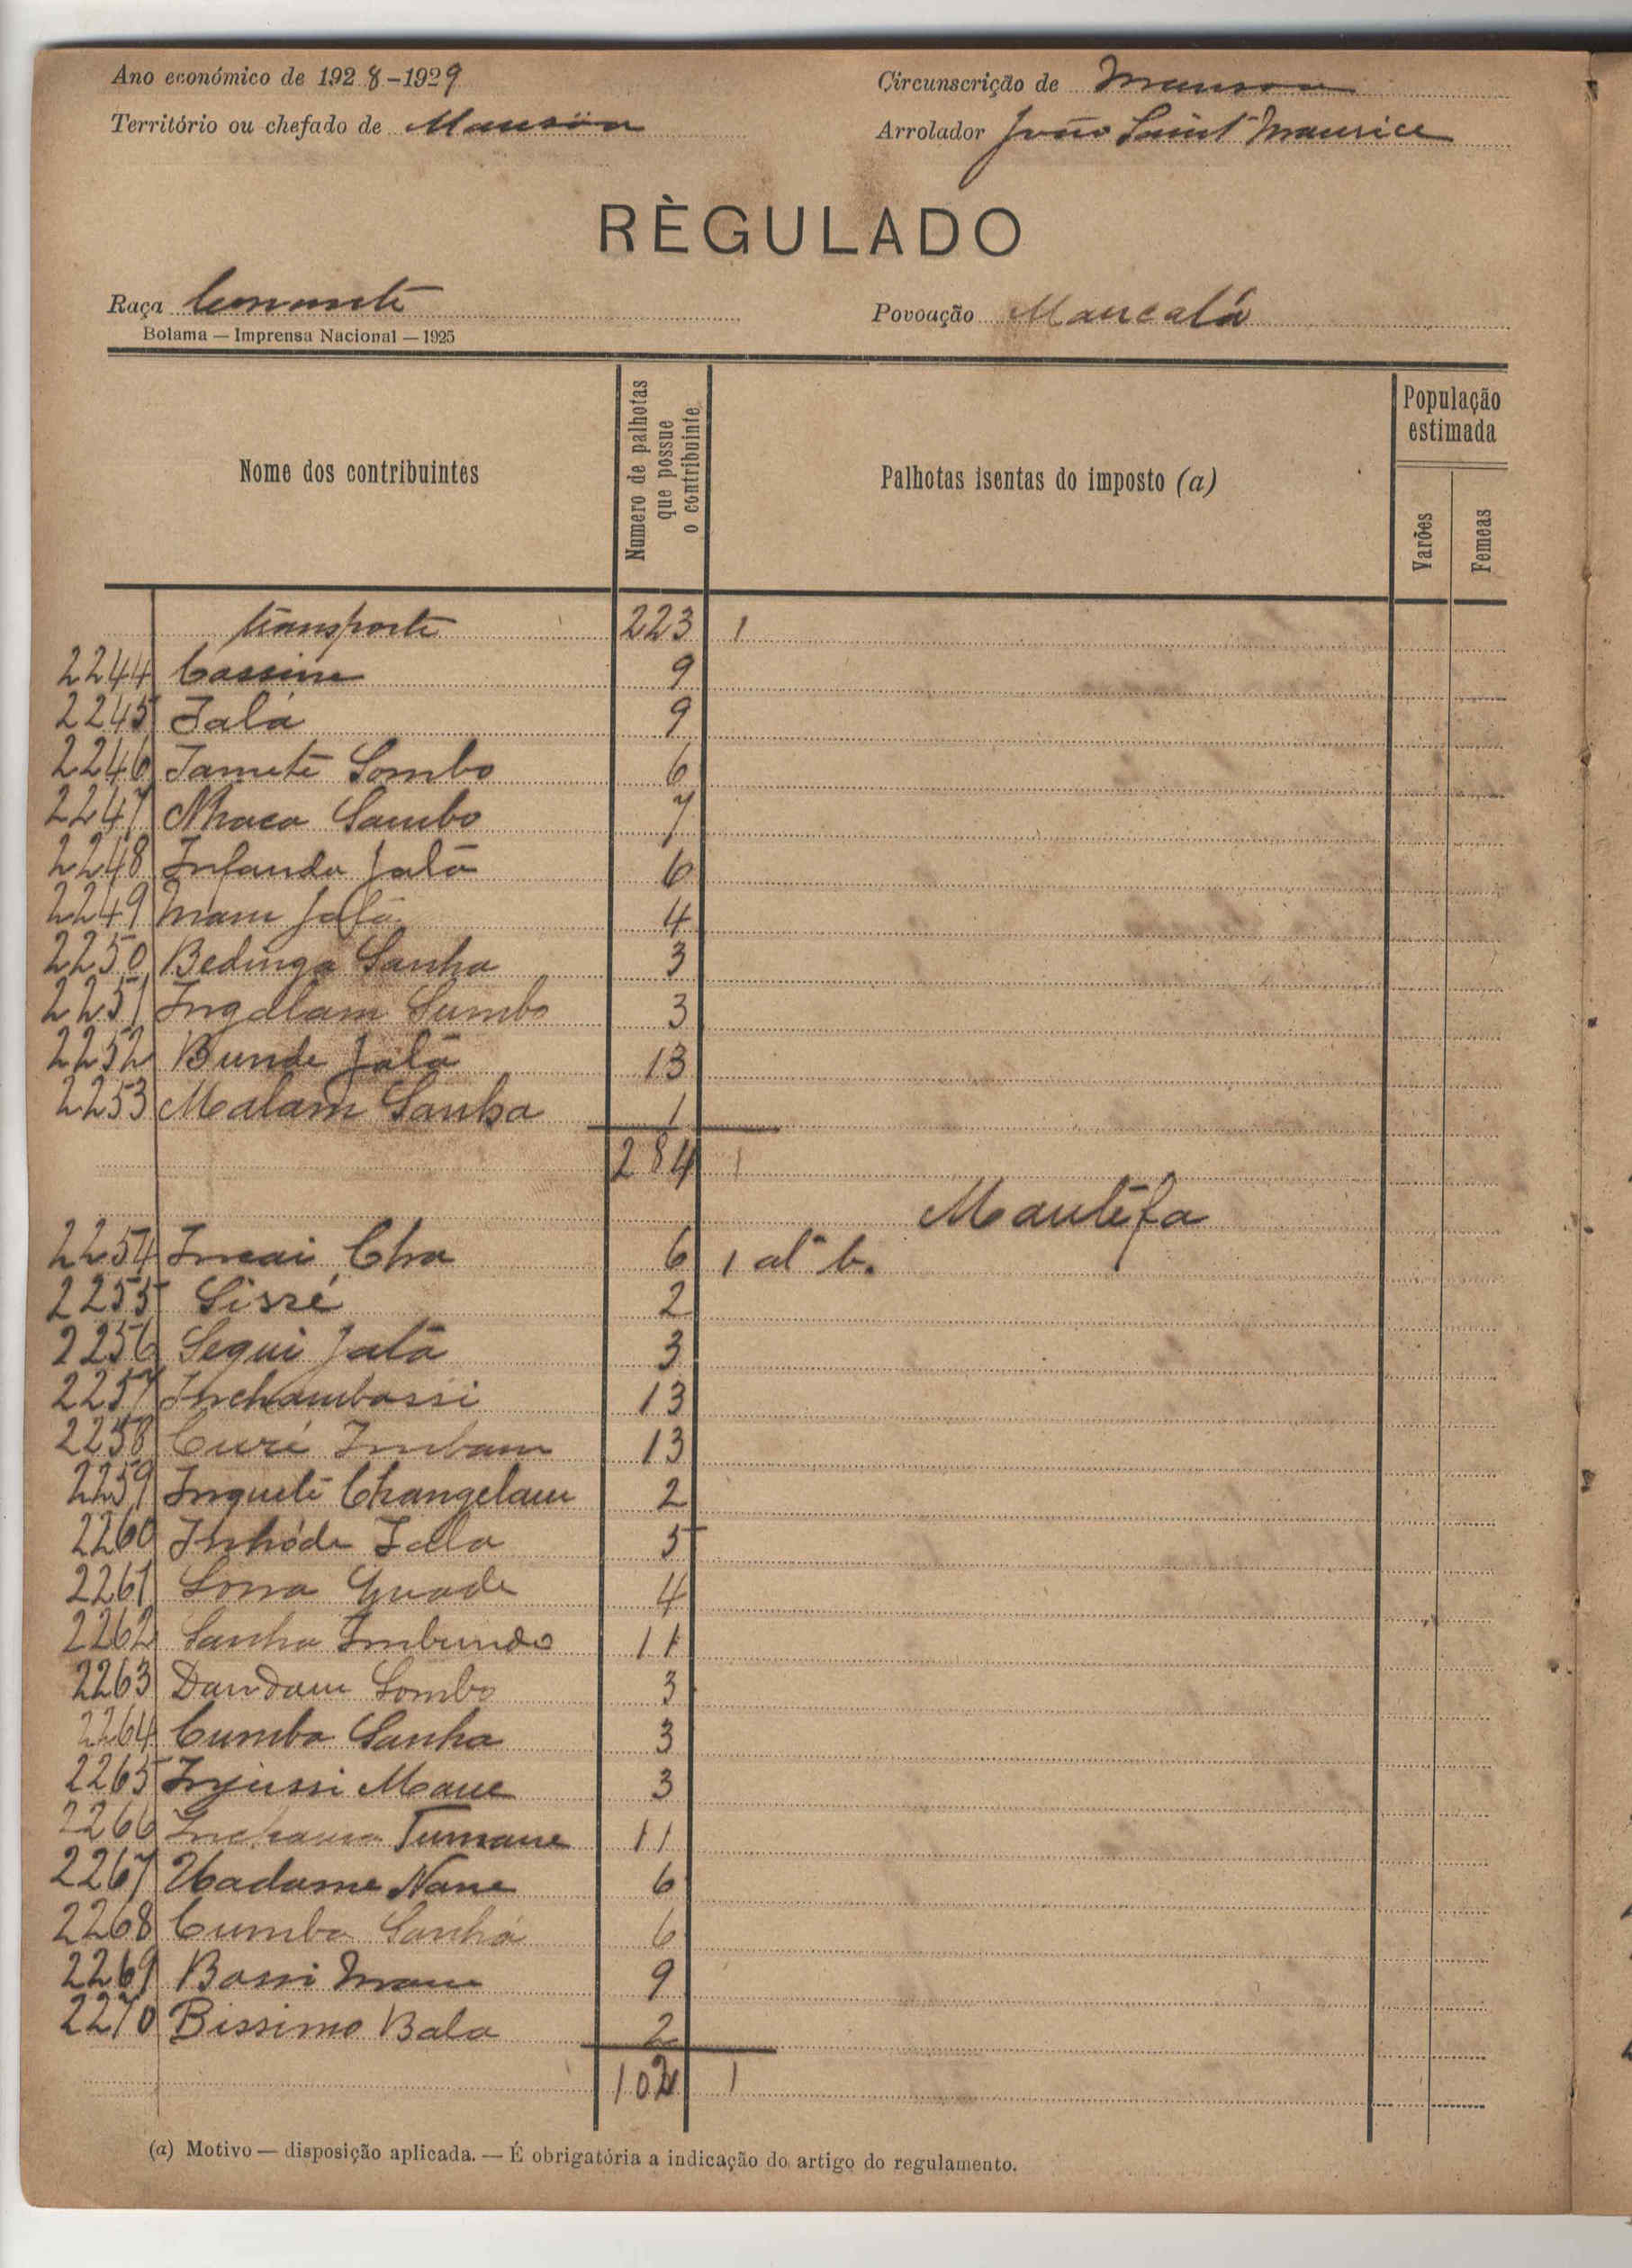 Ano económico de 1928-1929
Circunscrição de Mansoa
Território ou chefado de Mansôa
Arrolador João Saint Maurice
RÈGULADO
Raça
Povoação Mancalá
Bolama — Imprensa Nacional — 1925
Nome dos contribuintes
Numero de palhotas que possue o contribuinte
Palhotas isentas do imposto (a)
População estimada
Varões
Femeas
transporte 223 1
2244 Cassime 9
2245 Jalá 9
2246 Tameté Sombo 6
2247 Nhaca Sambo 7
2248 Infanda Jalá 6
2249 Mam Jalá 4
2250 Bedinga Sanha 3
2251 Ingalam Sumbo 3
2252 Bunde Jalá 13
2253 Malam Sanha 1
284 1
Mantéfa
2254 Incai Cha 6 1 alª b.
2255 Sisré 2
2256 Segui Jalá 3
2257 Inchambassi 13
2258 Curé Imbam 13
2259 Inquelé Changelam 2
2260 Inhóde Jalla 5
2261 Sona Quade 4
2262 Sanha Imbundo 11
2263 Dandam Sombo 3
2264 Cumba Sanha 3
2265 Injussi Mane 3
2266 Tumane 11
2267 Uadame Nane 6
2268 Cumba Sanhá 6
2269 Bassi Mane 9
2270 Bissimo Bala 2
102 1
(a) Motivo — disposição aplicada. — É obrigatória a indicação do artigo do regulamento.